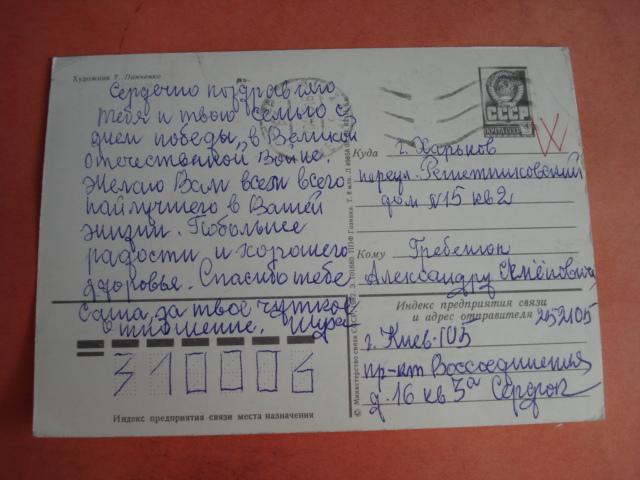 Художник Т. Панченко
Сердечно поздравляю
тебя и твою семью с
днем победы, в Великой
отечественной войне.
Желаю Вам всем всего
найлучшего в Вашей
жизни. Побольше
радости и хорошего
здоровье. Спасибо тебе
Саша, за твое чуткое
отношение. Шура
СССР
ПОЧТА СССР
Куда г. Харьков
переул. Решетниковский
дом №15 кв 2
Кому Гребенюк
Александру Семёновичу
Индекс предприятия связи
и адрес отправителя 252105
г. Киев-105
пр-кт Воссоединения
д. 16 кв 5а Сердюк
310006
Индекс предприятия связи места назначения
© Министерство связи СССР